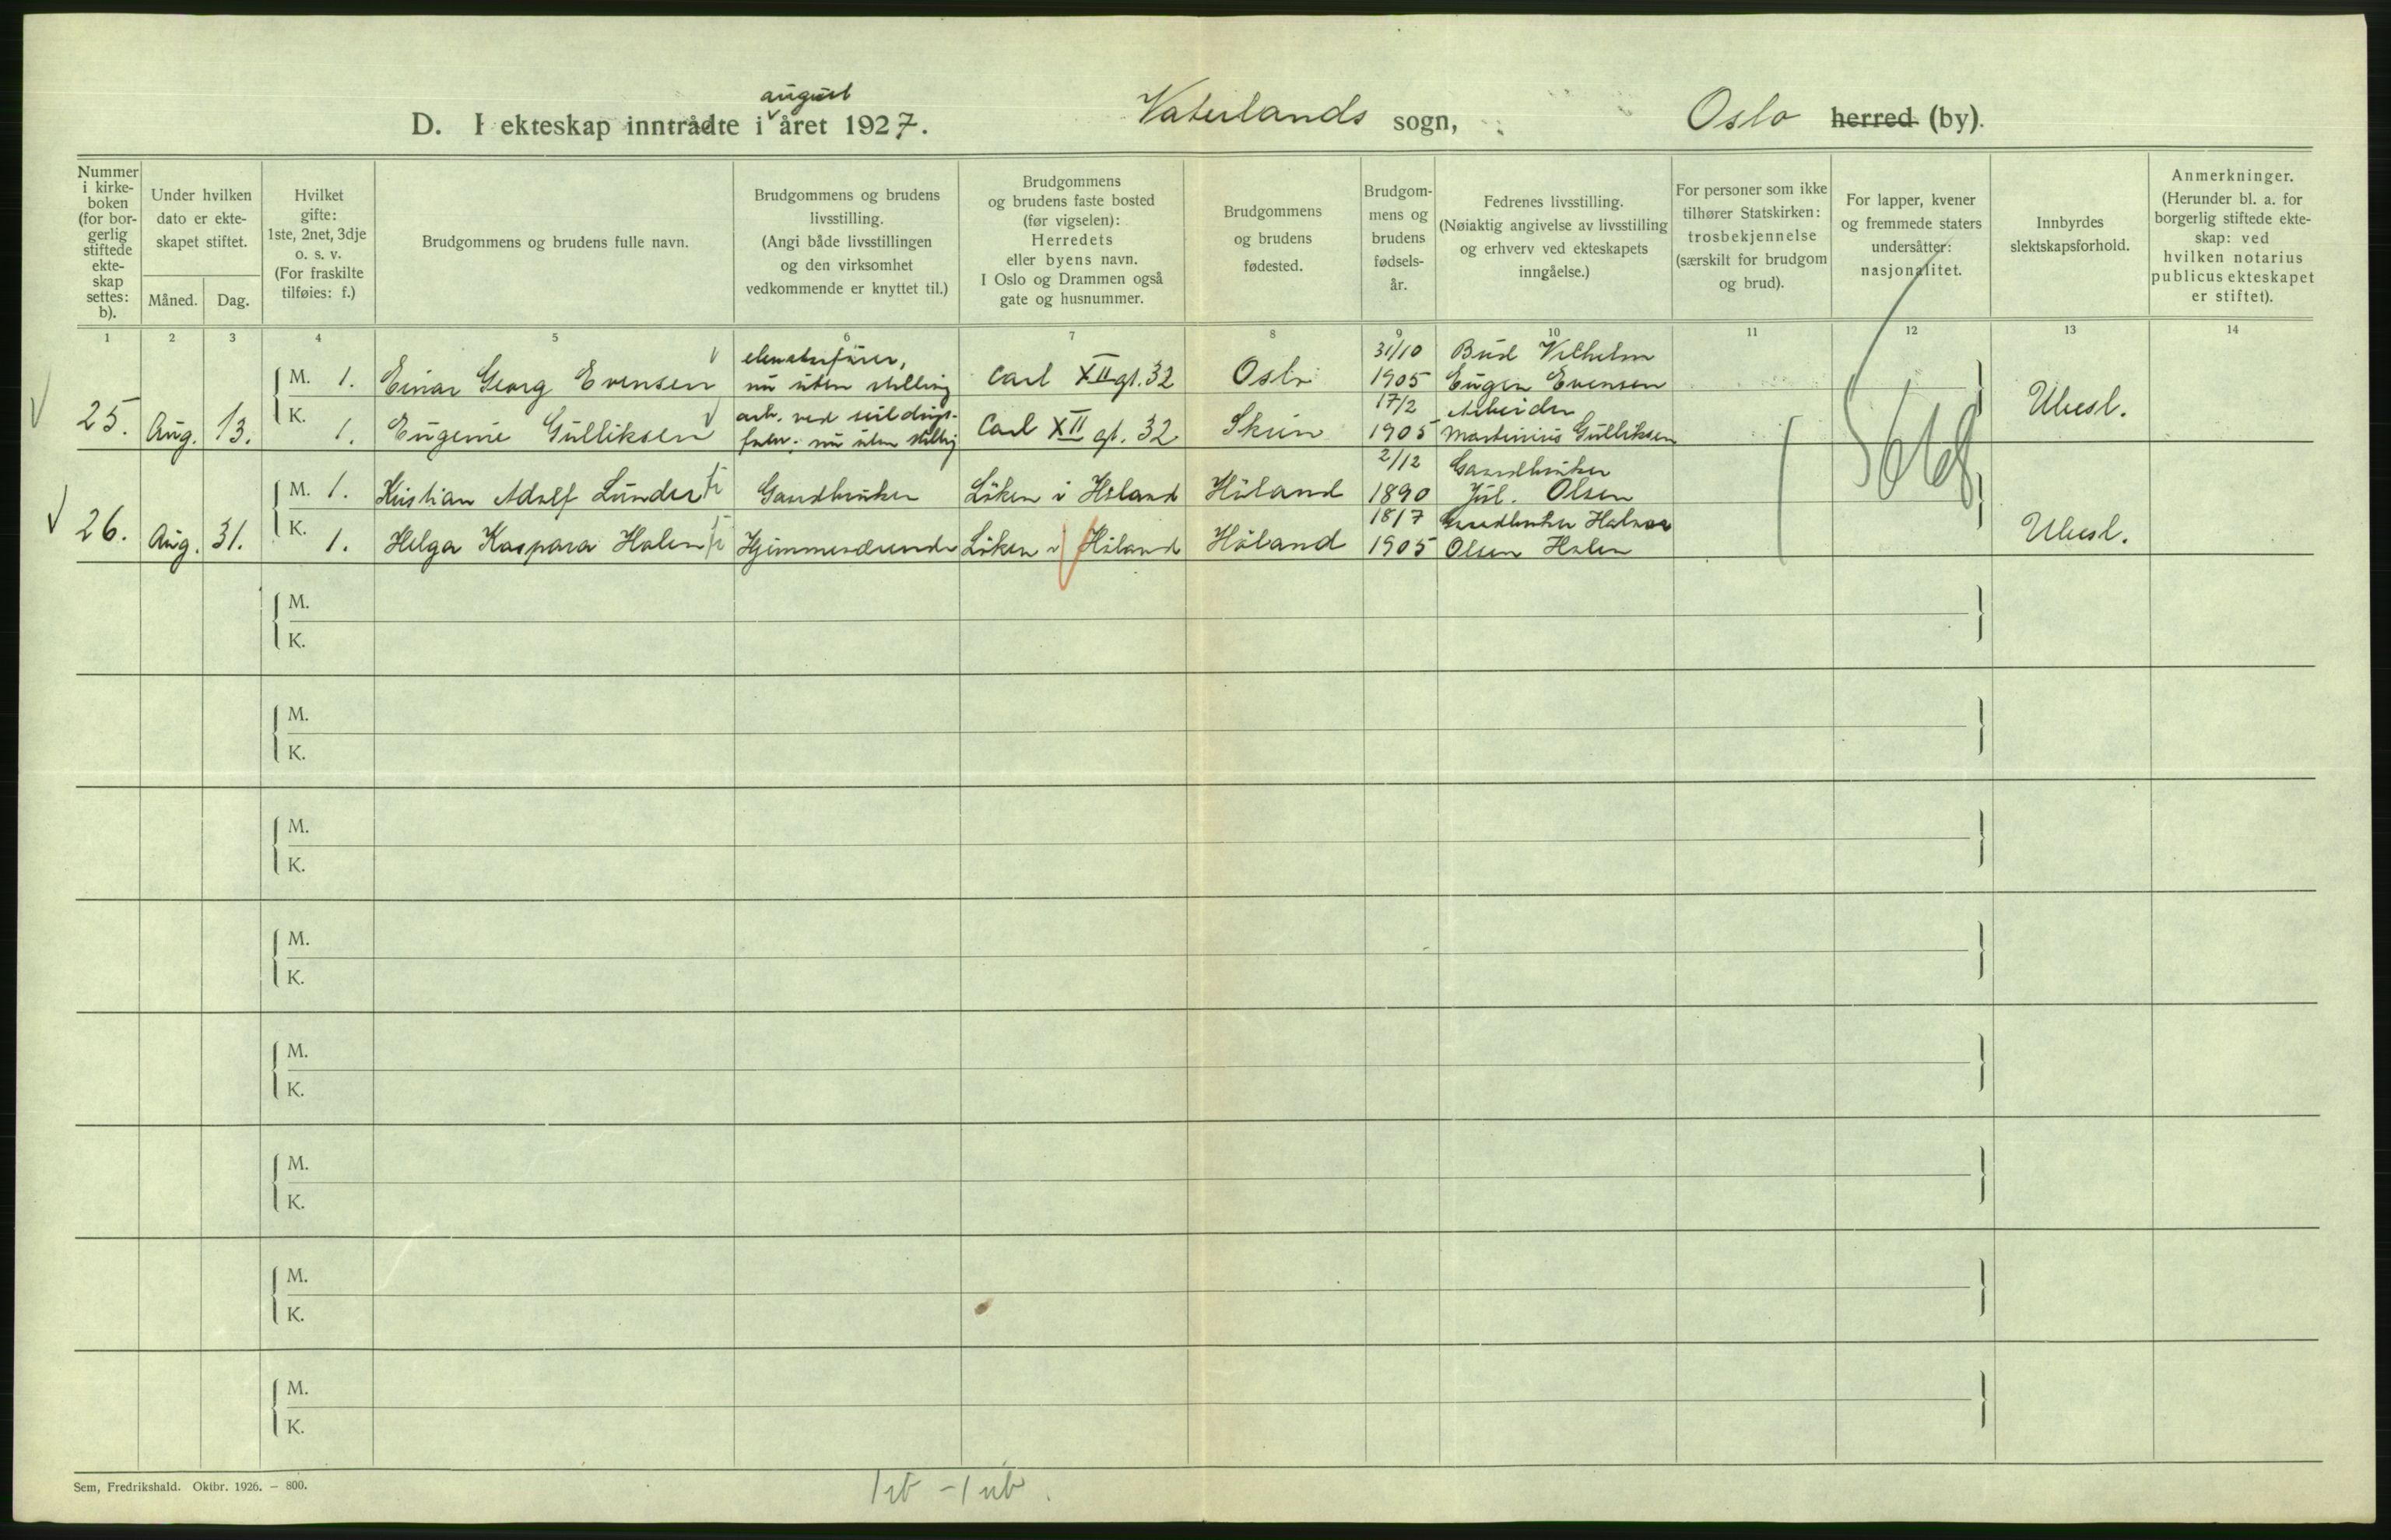 august
D. I ekteskap inntrådte i året 1927. Vaterlands sogn, Oslo herred (by).
Nummer i kirke-boken (for bor-gerlig stiftede ekte-skap settes: b).
Under hvilken dato er ekte-skapet stiftet.
Måned. Dag.
Hvilket gifte: 1ste, 2net, 3dje o. s. v. (For fraskilte tilføies: f.)
Brudgommens og brudens fulle navn.
Brudgommens og brudens livsstilling. (Angi både livsstillingen og den virksomhet vedkommende er knyttet til.)
Brudgommens og brudens faste bosted (før vigselen): Herredets eller byens navn. I Oslo og Drammen også gate og husnummer.
Brudgommens og brudens fødested.
Brudgom-mens og brudens fødsels-år.
Fedrenes livsstilling. (Nøiaktig angivelse av livsstilling og erhverv ved ekteskapets inngåelse.)
For personer som ikke tilhører Statskirken: trosbekjennelse (særskilt for brudgom og brud).
For lapper, kvener og fremmede staters undersåtter: nasjonalitet.
Innbyrdes slektskapsforhold.
Anmerkninger. (Herunder bl. a. for borgerlig stiftede ekte-skap: ved hvilken notarius publicus ekteskapet er stiftet).
1 2 3 4 5 6 7 8 9 10 11 12 13 14
25. Aug. 13.
M. 1. Einar Georg Evensen nu uten stilling Carl XII gt. 32 Oslo 31/10 1905 Bud Vilhelm Eugen Evensen
K. 1. Eugenie Gulliksen arb. ved nu uten stilling Carl XII gt. 32 Skien 17/2 1905 Arbeider Martinius Gulliksen
Ubesl.
26. Aug. 31.
M. 1. Kristian Adolf Lunder Gaardbruker Löken i Höland Höland 2/12 1890 Gaardbruker Jul. Olsen
K. 1. Helga Kaspara Holen Hjemmeværende Löken i Höland Höland 18/7 1905 Gaardbruker Olsen Holen
Ubesl.
M.
K.
M.
K.
M.
K.
M.
K.
M.
K.
M.
K.
M.
K.
M.
K.
Sem, Fredrikshald. Oktbr. 1926. — 800.